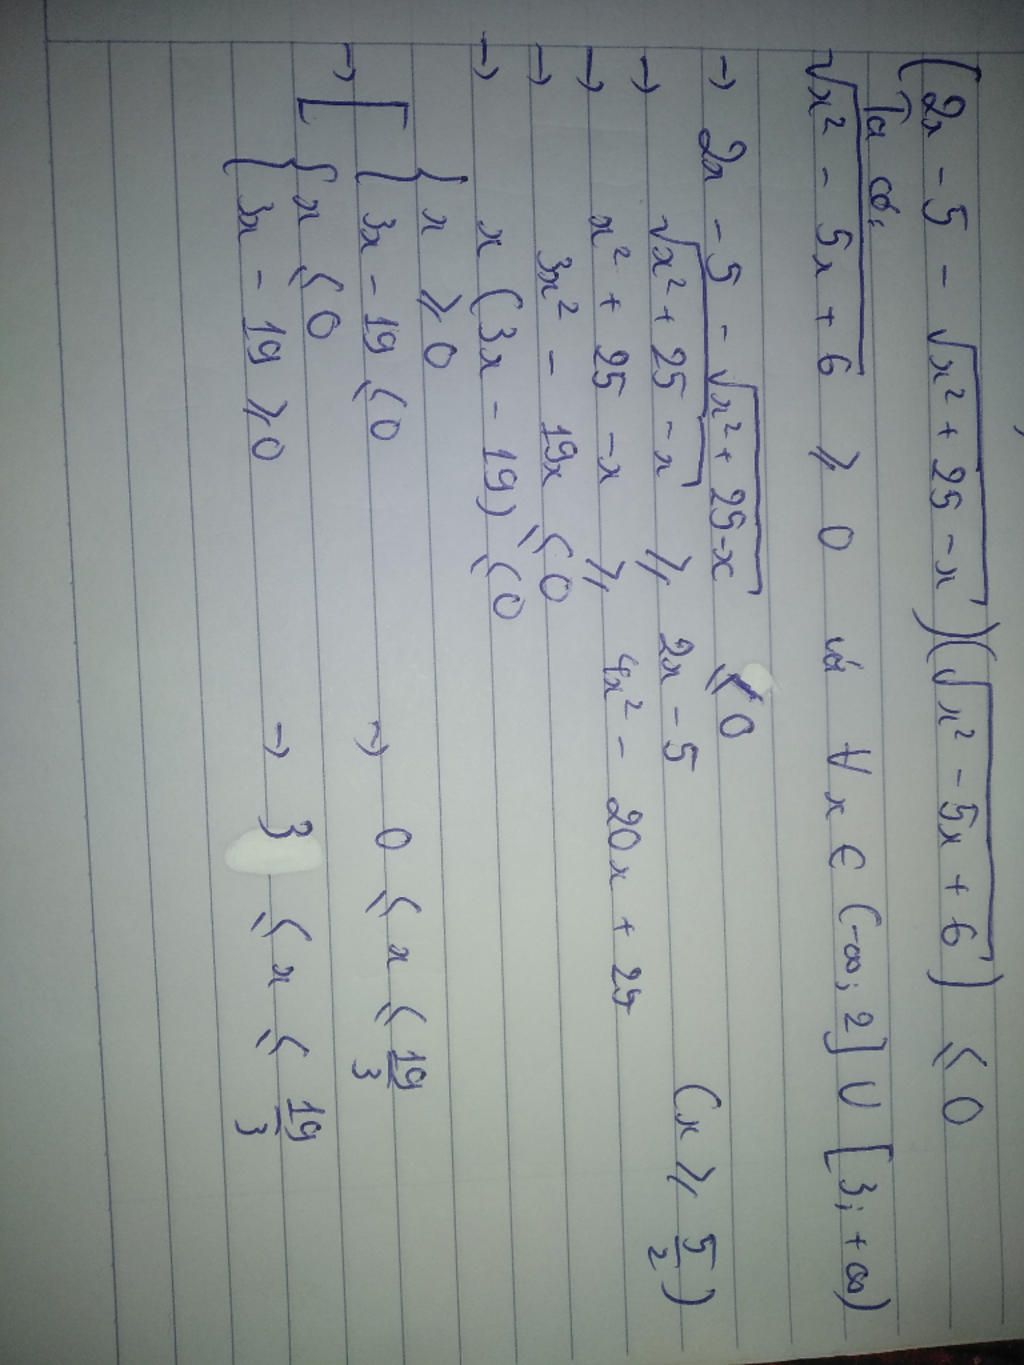 (2x - 5 - √(x² + 25 - x))(√(x² - 5x + 6)) ≤ 0
Ta có:
√(x² - 5x + 6) ≥ 0 với ∀ x ∈ (-∞; 2] ∪ [3; +∞)
→ 2x - 5 - √(x² + 25 - x) ≤ 0
→ √(x² + 25 - x) ≥ 2x - 5 (x ≥ 5/2)
→ x² + 25 - x ≥ 4x² - 20x + 25
→ 3x² - 19x ≤ 0
→ x (3x - 19) ≤ 0
→ [ { x ≥ 0
3x - 19 ≤ 0 → 0 ≤ x ≤ 19/3
{ x ≤ 0
3x - 19 ≥ 0 → 3 ≤ x ≤ 19/3